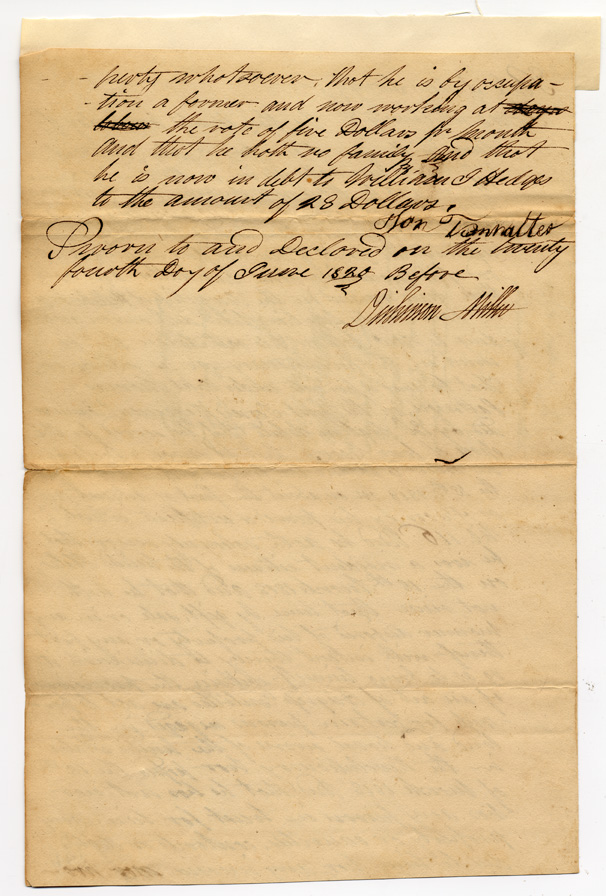 - - perty whatsoever. that he is by occupa-
- tion a farmer and now working at days
labour the rate of five Dollars pr month
and that he hath no family, and that
he is now in debt to William J Hedges
to the amount of 28 Dollars.
Sworn to and Declared on the twenty
fourth Day of June 1820 Before
Dickinson Miller